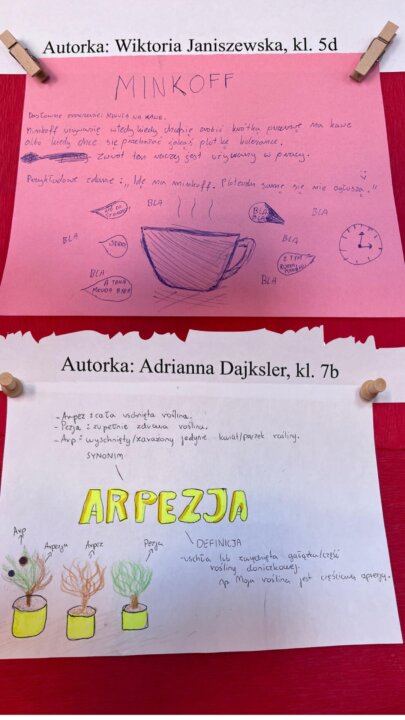 Autorka: Wiktoria Janiszewska, kl. 5d
MINKOFF
Dosłowne znaczenie: MINUTA NA KAWĘ.
Minkoff używamy wtedy, kiedy chcemy zrobić krótką przerwę na kawę
albo kiedy chce się przekazać jakąś plotkę koleżance.
Zwrot ten raczej jest używany w pracy.
Przykładowe zdanie: ,, Idę na minkoff. Ploteczki same się nie ogłoszą."
BLA
BLA BLA
BLA
BLA
BLA
BLA
BLA
Autorka: Adrianna Dajksler, kl. 7b
- Arpez : cała uschnięta roślina.
- Pezja : zupełnie zdrowa roślina.
- Arp : wyschnięty/zarażony jedynie kwiat/pączek rośliny.
SYNONIM
ARPEZJA
DEFINICJA
- uschła lub zwiędnięta gałązka/część
rośliny doniczkowej.
np Moja roślina jest częściową arpezją.
Arp
Arpezja
Arpez
Pezja